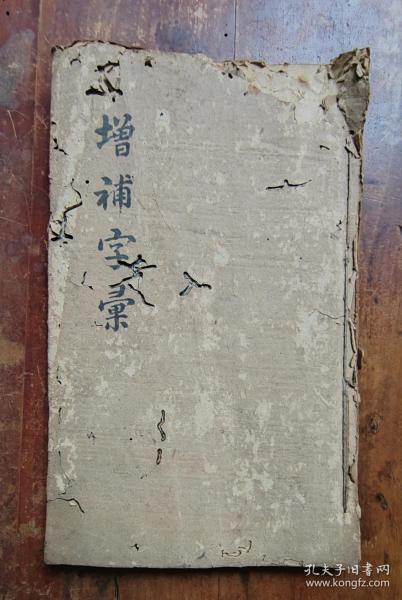 增補字彙
孔夫子旧书网
www.kongfz.com